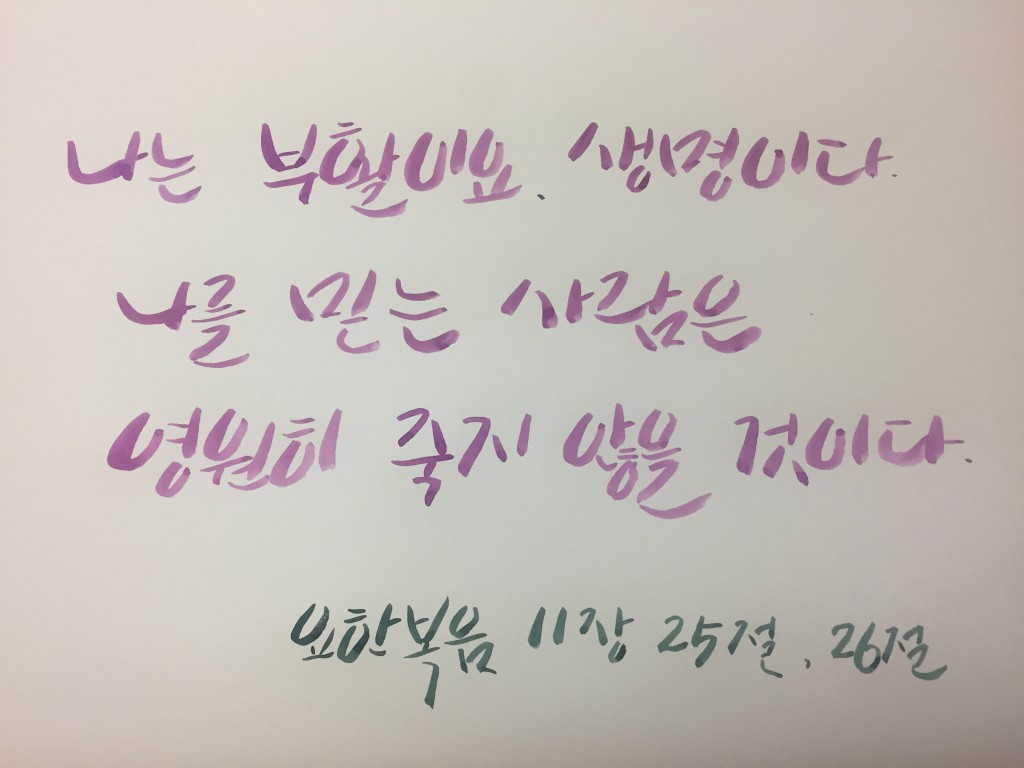 나는 부활이요, 생명이다.
나를 믿는 사람은
영원히 죽지 않을 것이다.
요한복음 11장 25절, 26절